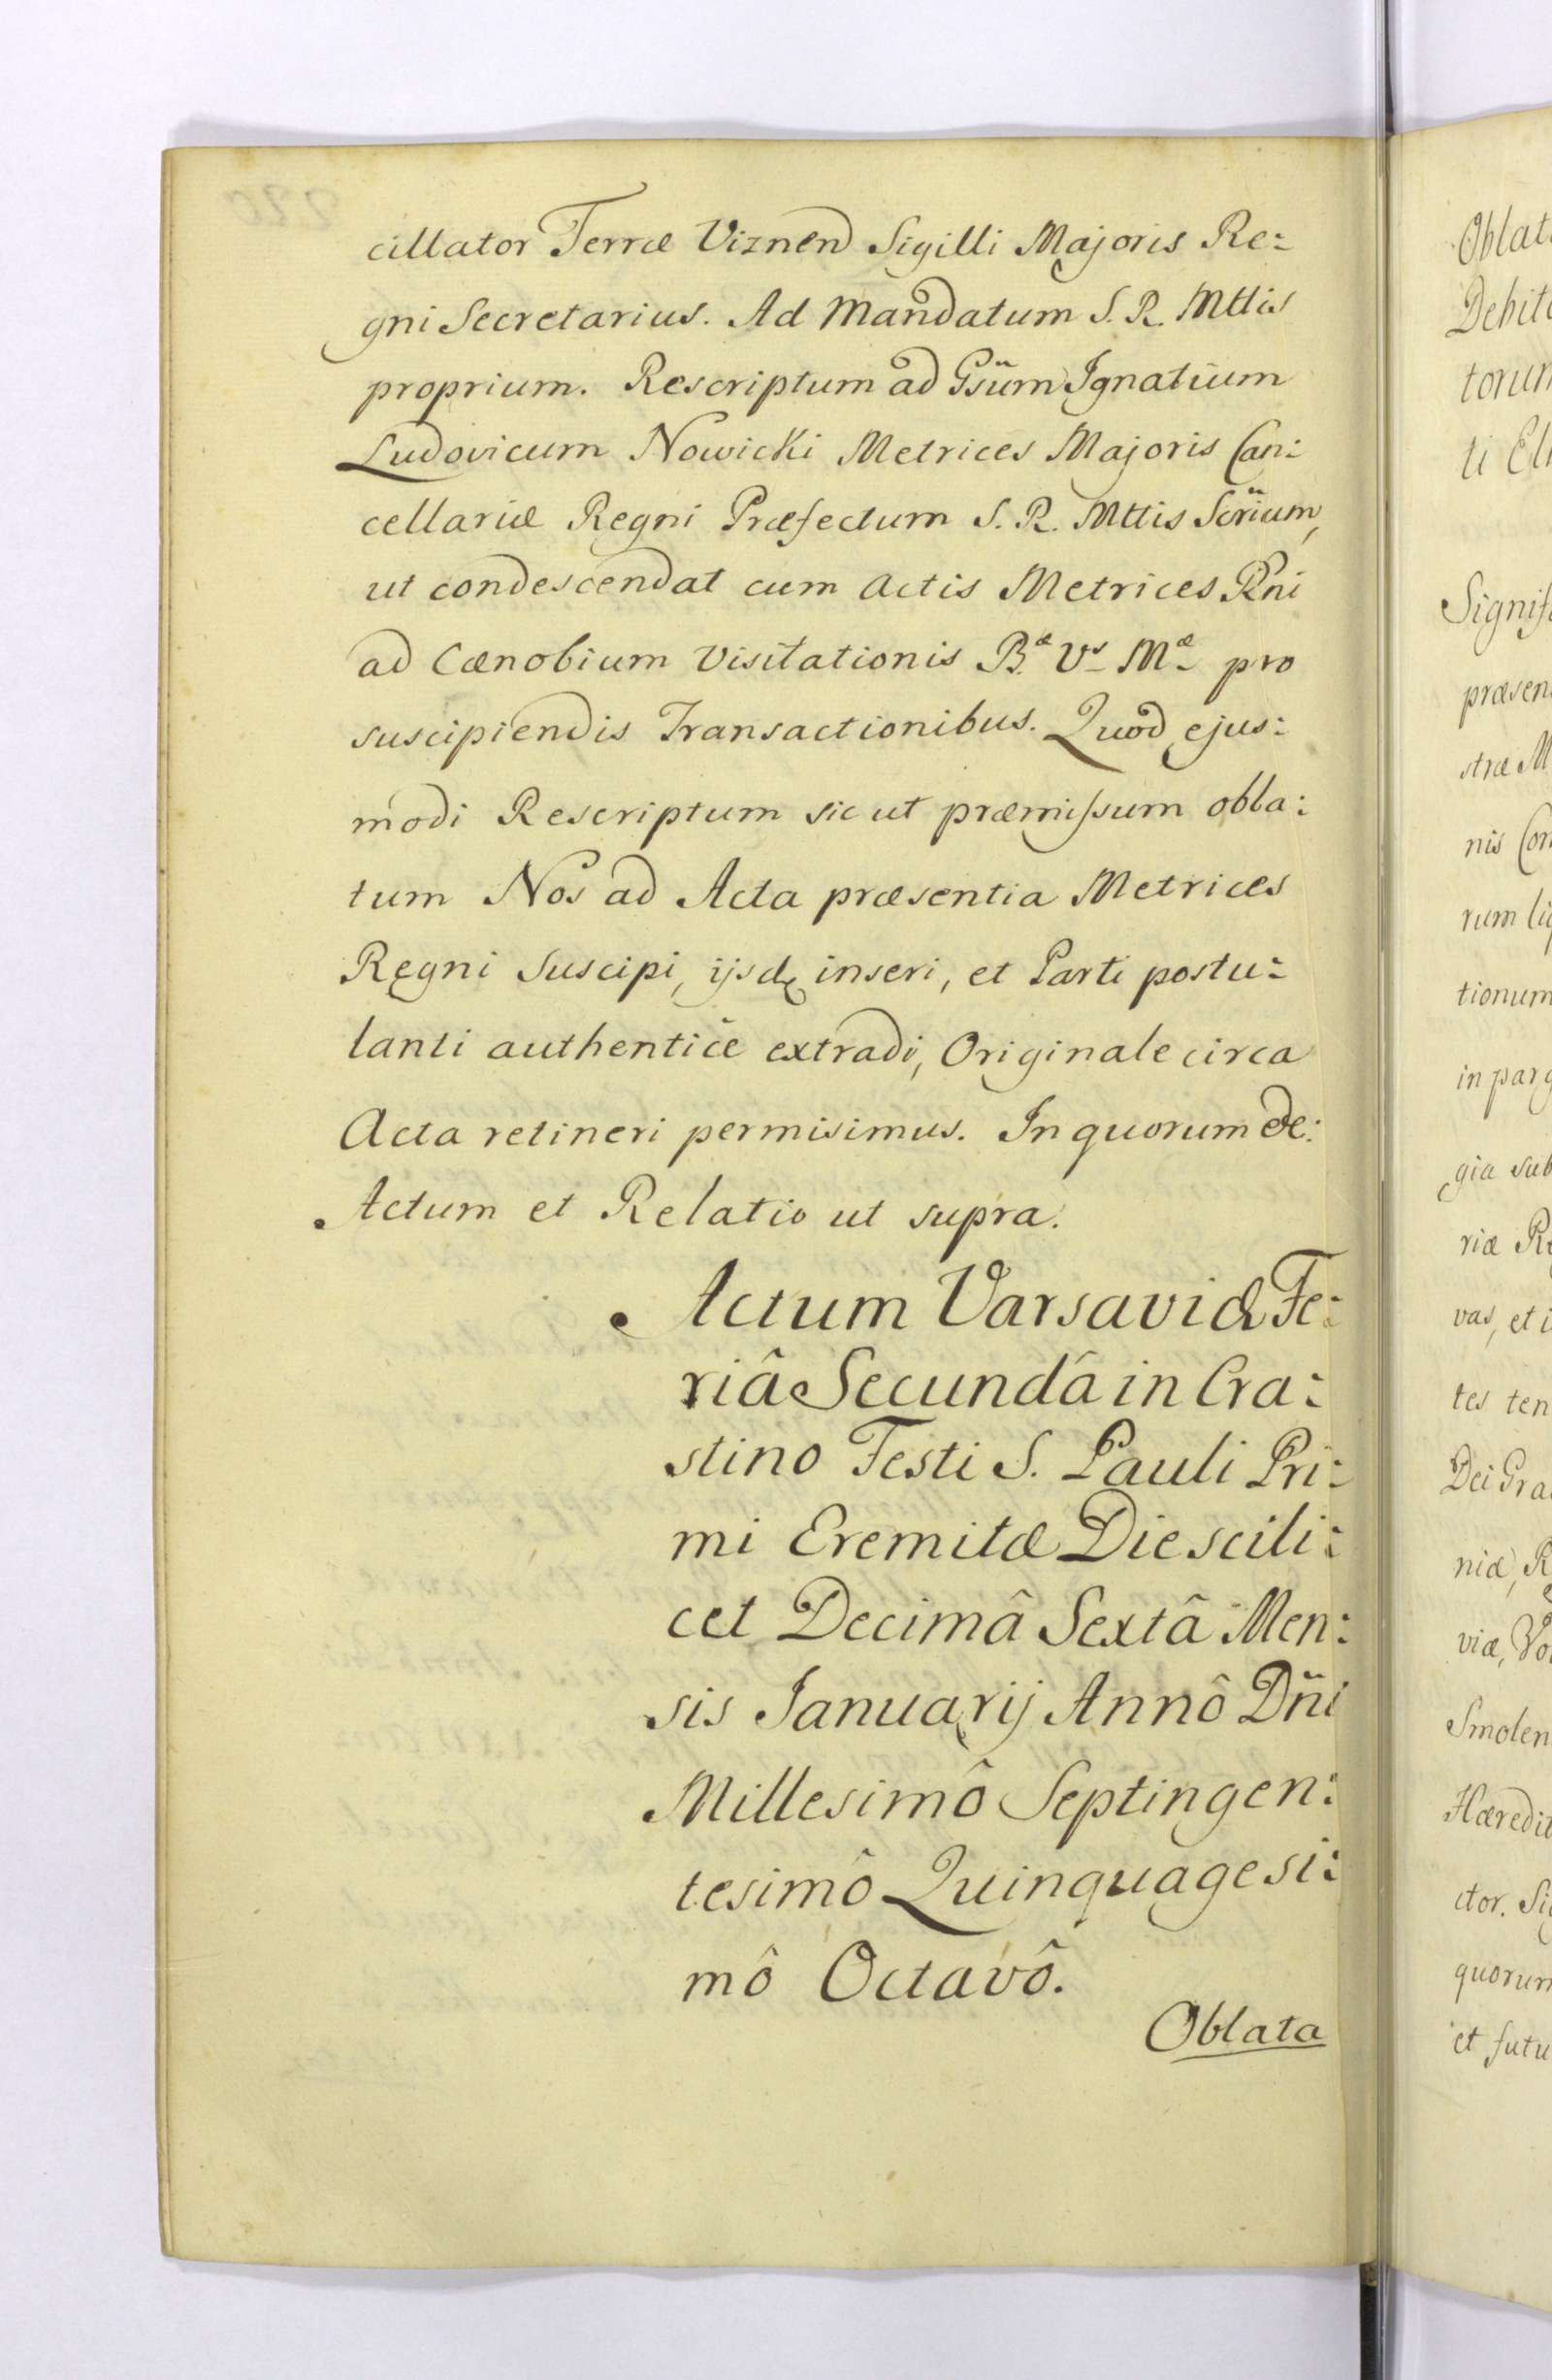 cillator Terræ Viznen Sigilli Majoris Re:
gni Secretarius. Ad Mandatum S. R. Mttis
proprium. Rescriptum ad Gsũm Ignatium
Ludovicum Nowicki Metrices Majoris Can:
cellariæ Regni Præfectum S. R. Mttis Scrĩum,
ut condescendat cum Actis Metrices Rni
ad Cænobium Visitationis B.æ Vs Mæ pro
suscipiendis Transactionibus. Quod ejus:
modi Rescriptum sic ut præmissum obla:
tum Nos ad Acta præsentia Metrices
Regni Suscipi, ijsdę inseri, et Parti postu:
lanti authenticè extradi, Originale circa
Acta retineri permisimus. In quorum &c:
Actum et Relatio ut supra.
Actum Varsaviæ Fe:
riâ Secundâ in Cra:
stino Festi S. Pauli Pri:
mi Eremitæ Die scili:
cet Decimâ Sextâ Men:
sis Januarij Annô Dñi
Millesimô Septingen:
tesimô Quinquagesi:
mô Octavô.
Oblata
Oblat
Debit
torum
ti El
Signif
præsen
stræ M
nis Con
rum liq
tionum
in parg
gia sub
riæ Re
vas, et i
tes ten
Dei Gra
niæ, R
viæ, Vo
Smolen
Hæredit
ctor. Sig
quorum
et futu